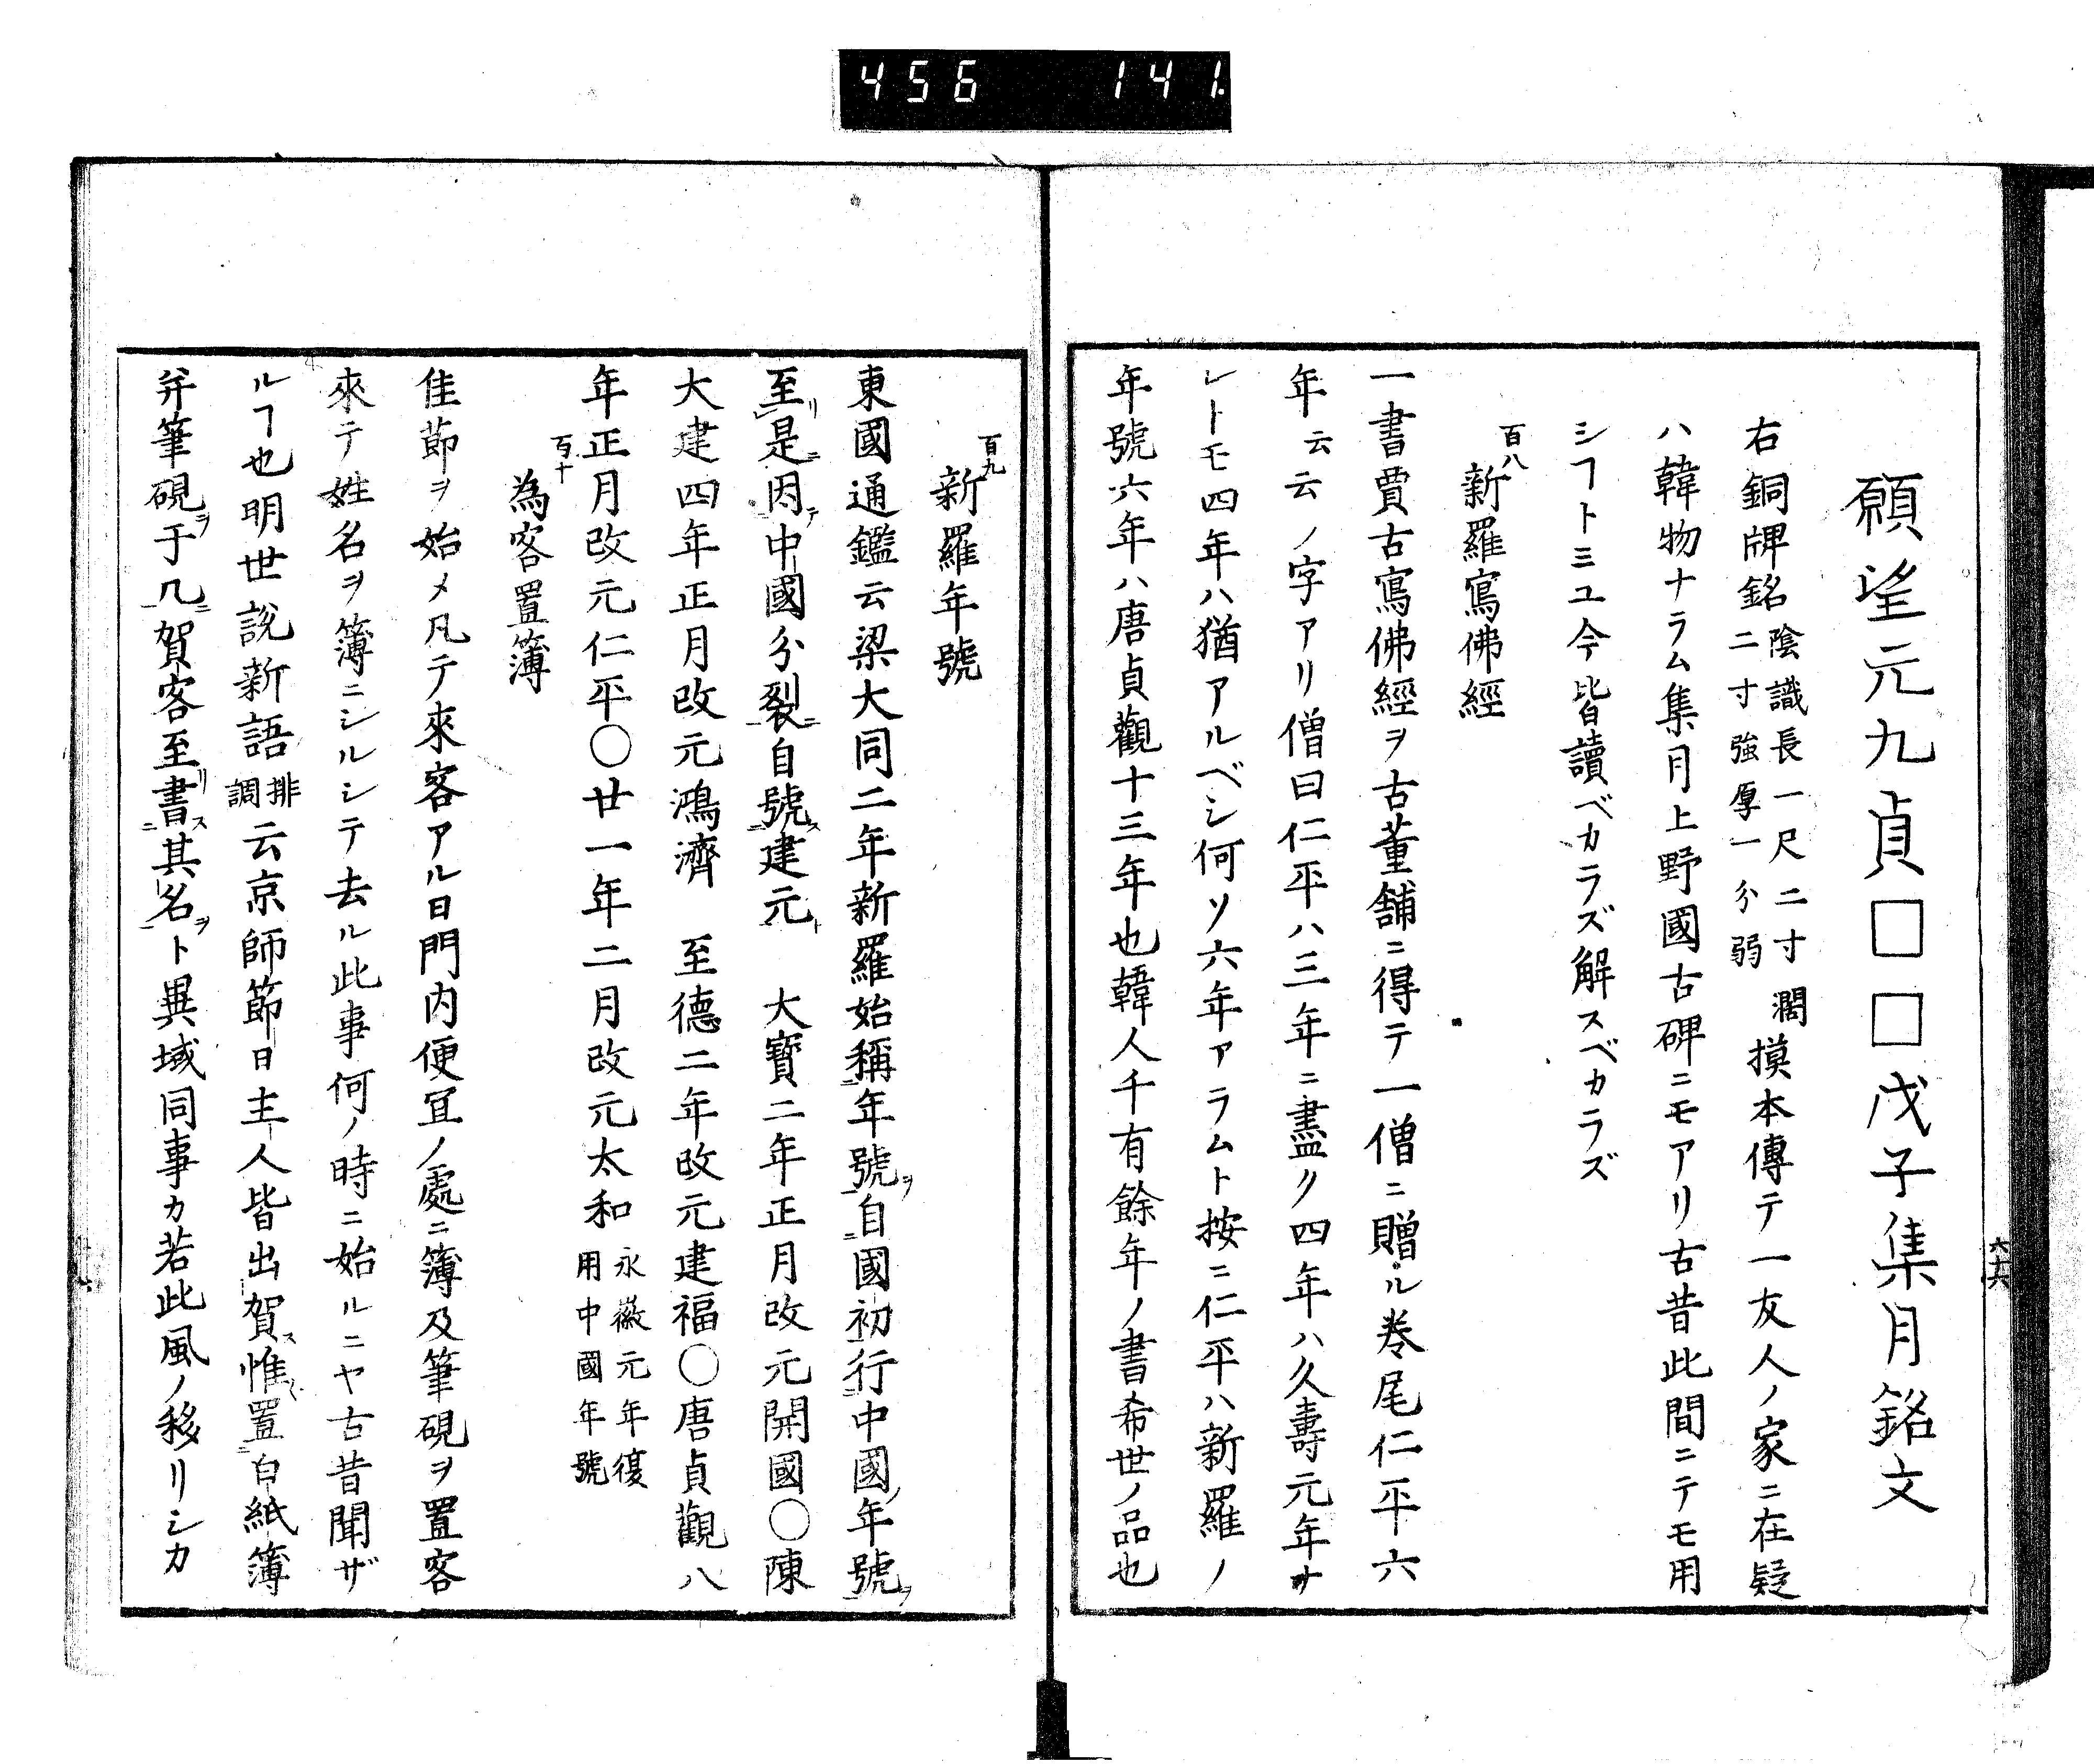 456 141.
願望元九貞□□戊子集月銘文
右銅牌銘陰識長一尺二寸濶二寸強厚一分弱摸本傳テ一友人ノ家ニ在疑
ハ韓物ナラム集月上野國古碑ニモアリ古昔此間ニテモ用
シヿトミユ今皆讀ベカラズ解スベカラズ
百八
新羅寫佛經
一書賈古寫佛經ヲ古董舗ニ得テ一僧ニ贈ル卷尾仁平六
年云云ノ字アリ僧曰仁平ハ三年ニ盡ク四年ハ久壽元年ナ
レトモ四年ハ猶アルベシ何ソ六年アラムト按ニ仁平ハ新羅ノ
年號六年ハ唐貞觀十三年也韓人千有餘年ノ書希世ノ品也
六十六
百九
新羅年號
東國通鑑云梁大同二年新羅始稱年號ヲ自國初行中國ノ年號ヲ
至リ是ニ因テ中國分裂ニ自號ス建元ト 大寶二年正月改元開國○陳
大建四年正月改元鴻濟 至德二年改元建福○唐貞觀八
年正月改元仁平○廿一年二月改元太和永薇元年復用中國年號
百十
為客置簿
佳節ヲ始メ凡テ來客アル日門内便宜ノ處ニ簿及筆硯ヲ置客
來テ姓名ヲ簿ニシルシテ去ル此事何ノ時ニ始ルニヤ古昔聞ザ
ルヿ也明世說新語排調云京師節日主人皆出賀ス惟置白紙簿
并筆硯ヲ于几ニ賀客至リ書ス其名ヲト異域同事カ若此風ノ移リシカ